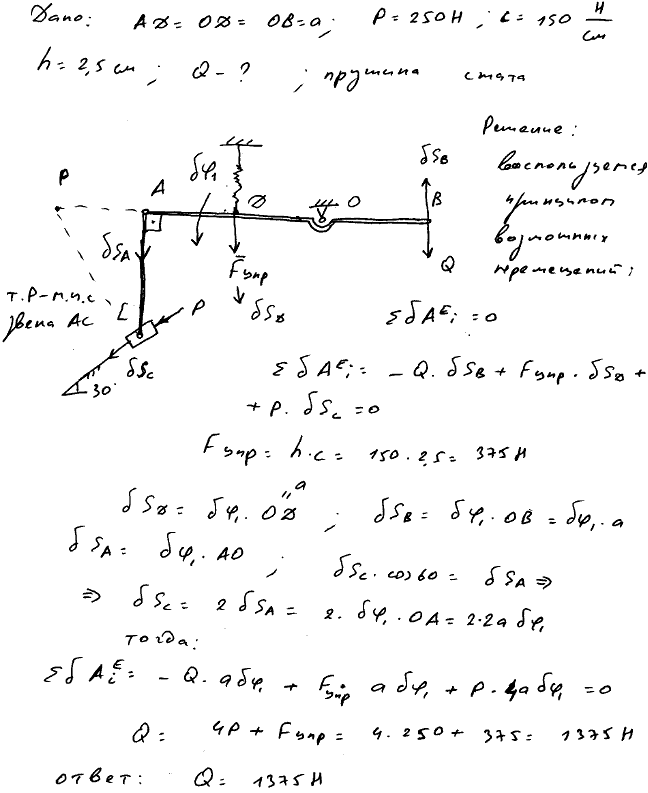 Дано: AD = OD = OB = a; P = 250 Н; c = 150 Н/см
h = 2,5 см; Q - ?; пружина сжата
Решение:
воспользуемся
принципом
возможных
перемещений:
P
A
δφ₁
D
O
δS_B
B
Q
δS_A
F̄упр
δS_D
т. P – м.ц.с
звена AC
C
P
δS_C
30°
ΣδA^E_i = 0
ΣδA^E_i = - Q · δS_B + Fупр · δS_D +
+ P · δS_C = 0
Fупр = h·c = 150 · 2,5 = 375 Н
a
δS_D = δφ₁ · OD ; δS_B = δφ₁ · OB = δφ₁ · a
δS_A = δφ₁ · AO ; δS_C · cos 60 = δS_A ⇒
⇒ δS_C = 2 δS_A = 2 · δφ₁ · OA = 2·2a δφ₁
тогда:
ΣδA^E_i = - Q · aδφ₁ + Fупр · aδφ₁ + P · 4aδφ₁ = 0
Q = 4P + Fупр = 4·250 + 375 = 1375 Н
ответ: Q = 1375 Н